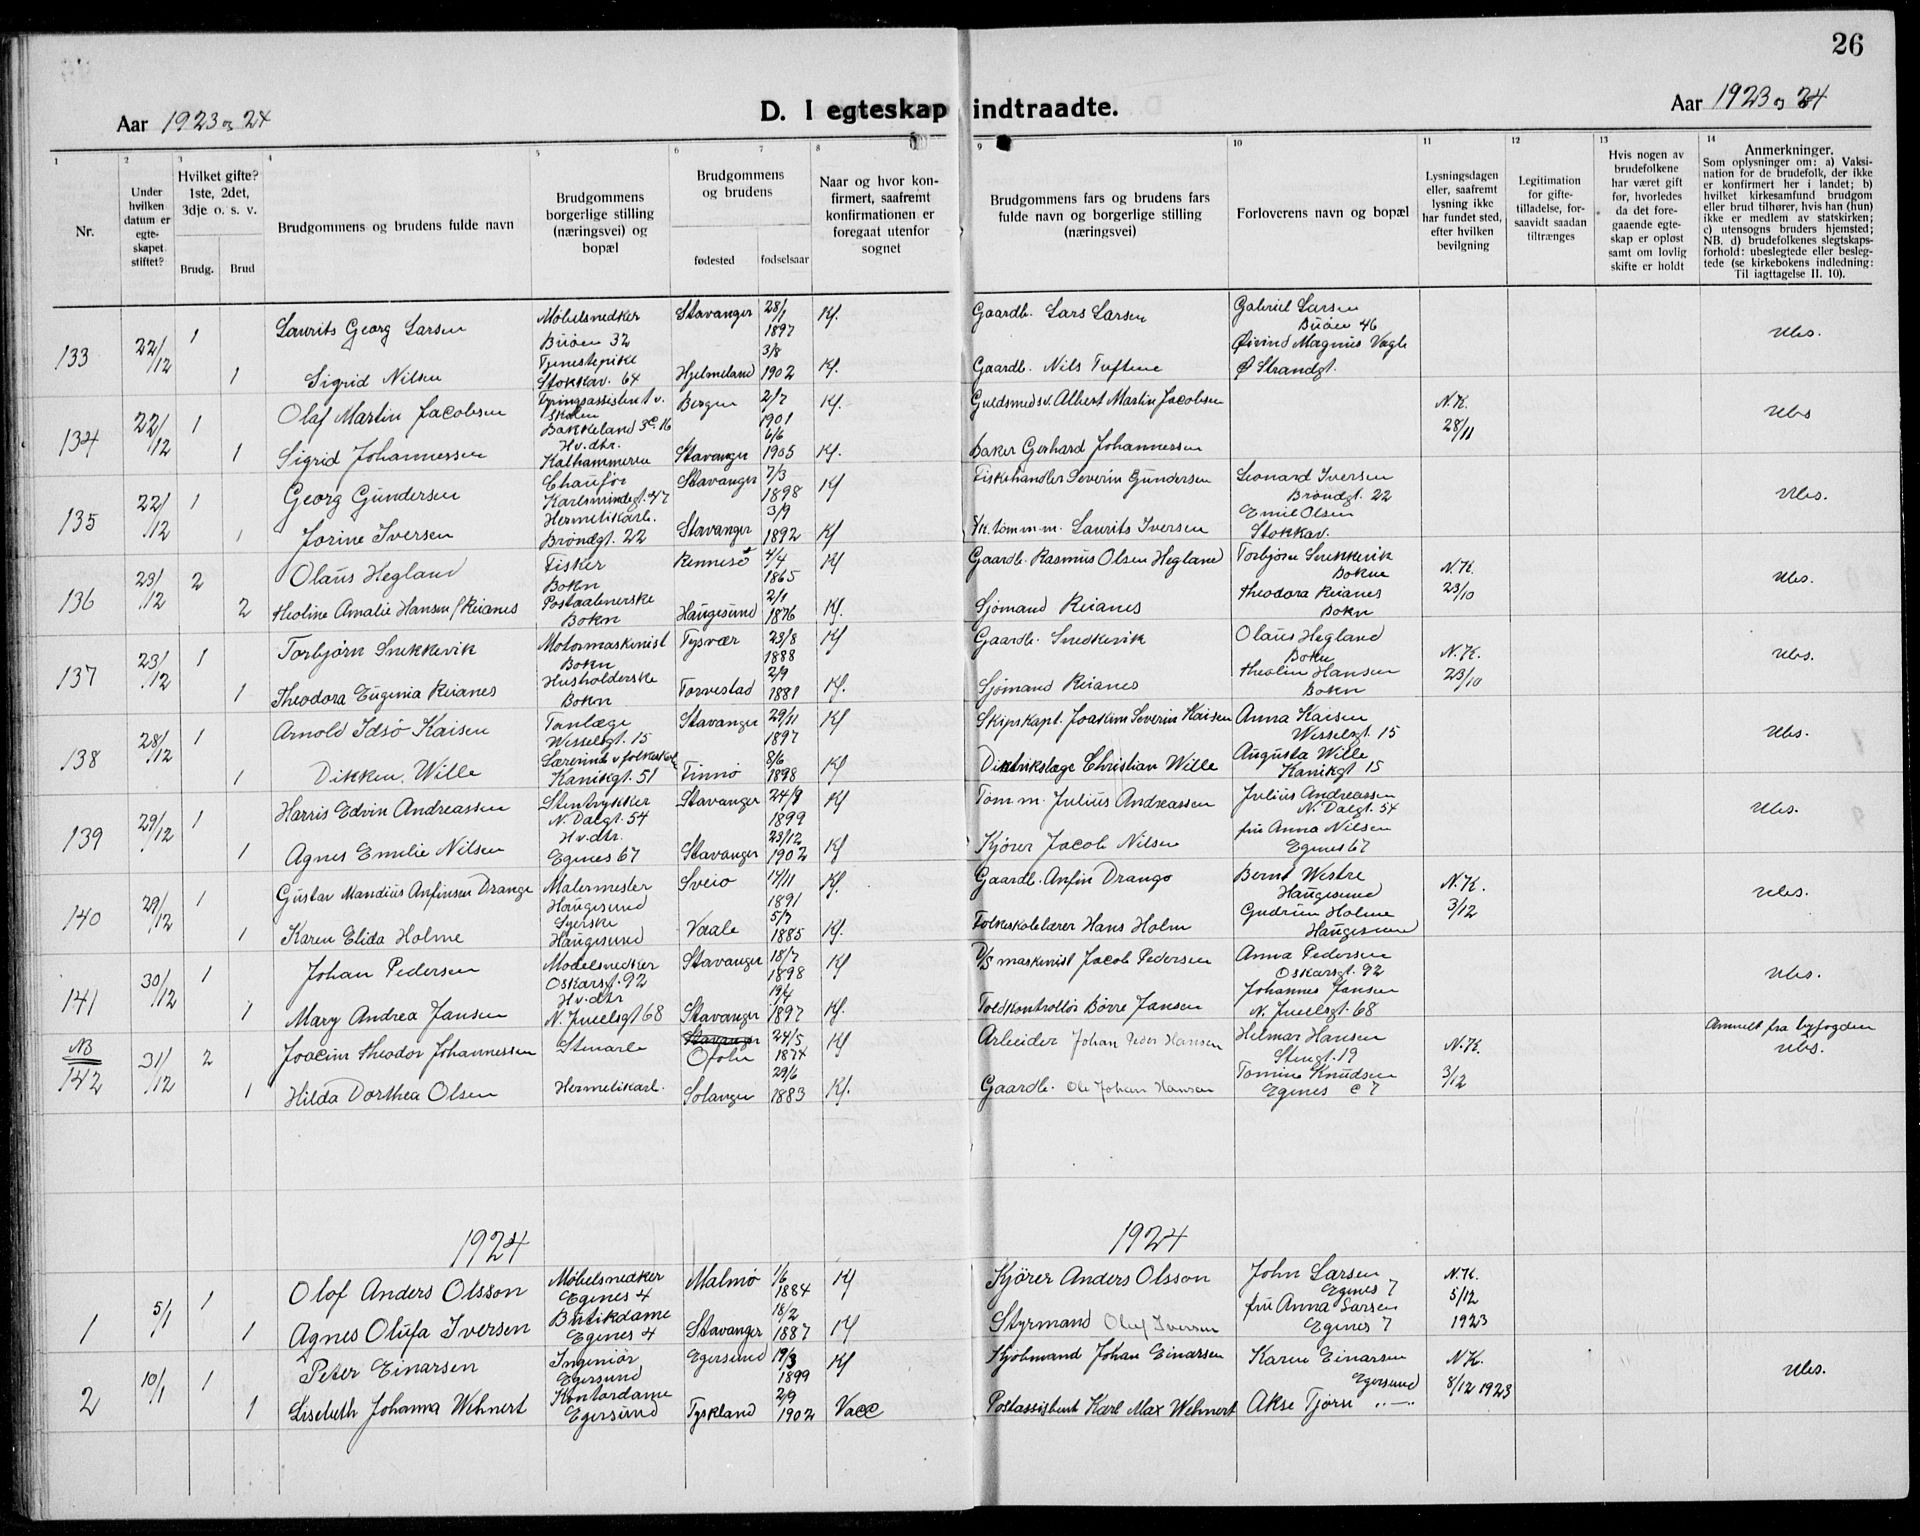 26
Aar 1923 og 24
D. I egteskap indtraadte.
Aar 1923 og 24
1 2 3 4 5 6 7 8 9 10 11 12 13 14
Nr.
Under hvilken datum er egte-skapet stiftet?
Hvilket gifte? 1ste, 2det, 3dje o. s. v.
Brudg. Brud
Brudgommens og brudens fulde navn
Brudgommens borgerlige stilling (næringsvei) og bopæl
Brudgommens og brudens
fødested fødselsaar
Naar og hvor kon-firmert, saafremt konfirmationen er foregaat utenfor sognet
Brudgommens fars og brudens fars fulde navn og borgerlige stilling (næringsvei)
Forloverens navn og bopæl
Lysningsdagen eller, saafremt lysning ikke har fundet sted, efter hvilken bevilgning
Legitimation for gifte-tilladelse, for-saavidt saadan tiltrænges
Hvis nogen av brudefolkene har været gift før, hvorledes da det fore-gaaende egte-skap er opløst samt om lovlig skifte er holdt
Anmerkninger.
Som oplysninger om: a) Vaksi-nation for de brudefolk, der ikke er konfirmert her i landet; b) hvilket kirkesamfund brudgom eller brud tilhører, hvis han (hun) ikke er medlem av statskirken; c) utensogns bruders hjemsted; NB. d) brudefolkenes slegtskaps-forhold: ubeslegtede eller besleg-tede (se kirkebokens indledning: Til iagttagelse II. 10).
133 22/12 1 Laurits Georg Larsen Møbelsnedker Buøen 32 Stavanger 28/1 1897 Kf. Gaardb. Lars Larsen Gabriel Larsen Buøen 46 Ubs.
1 Sigrid Nilsen Tjenestepike Stokkav. 64 Hjelmeland 3/8 1902 Kf. Gaardb. Nils Tuftene Øivind Magnus Vagle Ø Strandgt.
134 22/12 1 Olaf Martin Jacobsen Bakkeland 3c. 16 Bergen 2/7 1901 Kf. Guldsmedsv. Albert Martin Jacobsen N.K. 28/11 Ubs
1 Sigrid Johannessen Hv.dtr. Kalhammeren Stavanger 6/6 1905 Kf. Baker Gerhard Johannessen
135 22/12 1 Georg Gundersen Chaufør Karlsmindegt. 47 Stavanger 7/3 1898 Kf Fiskehandler Severin Gundersen Leonard Iversen Brøndgt. 22 Ubs.
1 Jorine Iversen Hermetikarb. Brøndgt. 22 Stavanger 3/9 1892 Kf Sk. tømm.m. Laurits Iversen Emil Olsen Stokkav.
136 23/12 2 Olaus Hegland Fisker Bokn Rennesø 4/4 1865 Kf Gaardb. Rasmus Olsen Hegland Torbjørn Snekkevik Bokn N.K. 23/10 Ubs.
2 Theoline Amalie Hansen f. Reianes Postaabnerske Bokn Haugesund 2/1 1876 Kf. Sjømand Reianes Theodora Reianes Bokn
137 23/12 1 Torbjørn Snekkevik Motormaskinist Bokn Tysvær 23/8 1888 Kf Gaardb. Snedkevik Olaus Hegland Bokn N.K. 23/10 Ubs.
1 Theodora Eugenia Reianes Husholderske Bokn Torvestad 2/9 1881 Kf. Sjømand Reianes Theolin Hansen Bokn
138 28/12 1 Arnold Idsø Kaisen Tanlæge Wesselsgt. 15 Stavanger 29/11 1897 Kf Skipskapt. Joakim Severin Kaisen Anna Kaisen Wesselsgt. 15 Ubs.
1 Dikken Wille Lærerinde v folkesk. Kanikgt. 51 Finnø 8/6 1898 Kf Distriktslæge Christian Wille Augusta Wille Kanikgt 15
139 29/12 1 Harris Edvin Andreassen Stentrykker N. Dalgt. 54 Stavanger 24/9 1899 Kf Tøm m. Julius Andreassen Julius Andreassen N. Dalgt. 54 Ubs.
1 Agnes Emilie Nilsen Hv.dtr. Egenes 67 Stavanger 23/12 1902 Kf Kjører Jacob Nilsen fru Anna Nilsen Egenes 67
140 29/12 1 Gustav Mandius Anfinsen Drange Malermester Haugesund Sveio 17/11 1891 Kf. Gaardb. Anfin Drange Bernt Westre Haugesund N.K. 3/12 Ubs.
1 Karen Elida Holme Syerske Haugesund Vaale 5/7 1885 Kf. Folkeskolelærer Hans Holm Gudrun Holme Haugesund
141 30/12 1 Johan Pedersen Modelsnedker Oskarsgt. 92 Stavanger 18/7 1898 Kf D/S maskinist Jacob Pedersen Anna Pedersen Oskarsgt. 92 Ubs.
1 Mary Andrea Jansen Hv.dtr N. Juelsgt 68 Stavanger 19/4 1897 Kf. Toldkontrollør Børre Jansen Johannes Jansen N. Juelsgt. 68
NB 142 31/12 2 Joacim Theodor Johannessen Stuearb. Stavanger Ofoten 24/5 1874 Kf Arbeider Johan Peder Hansen Helmar Hansen Stengt. 19 N.K. 3/12 Anmelt fra byfogden Ubs.
1 Hilda Dorthea Olsen Hermetikarb. Solangen 29/6 1883 Kf. Gaardb. Ole Johan Hansen Tomine Knudsen Egenes C 7
1924 1924
1 5/1 1 Olof Anders Olsson Møbelsnedker Egenes 4 Malmø 1/6 1884 Kf Kjører Anders Olsson John Larsen Egenes 7 N.K. 5/12 1923
1 Agnes Olufa Iversen Butikdame Egenes 4 Stavanger 18/2 1887 Kf Styrmand Oluf Iversen fru Anna Larsen Egenes 7
2 10/1 1 Peter Einarsen Ingeniør Egersund Egersund 19/3 1899 Kf Kjøbmand Johan Einarsen Karen Einarsen Egersund N.K. 8/12 1923 Ubs.
1 Lisebeth Johanna Wehnert Kontordame Egersund Tyskland 2/9 1902 Vacc Postassistent Karl Max Wehnert Akse Tjørn "—